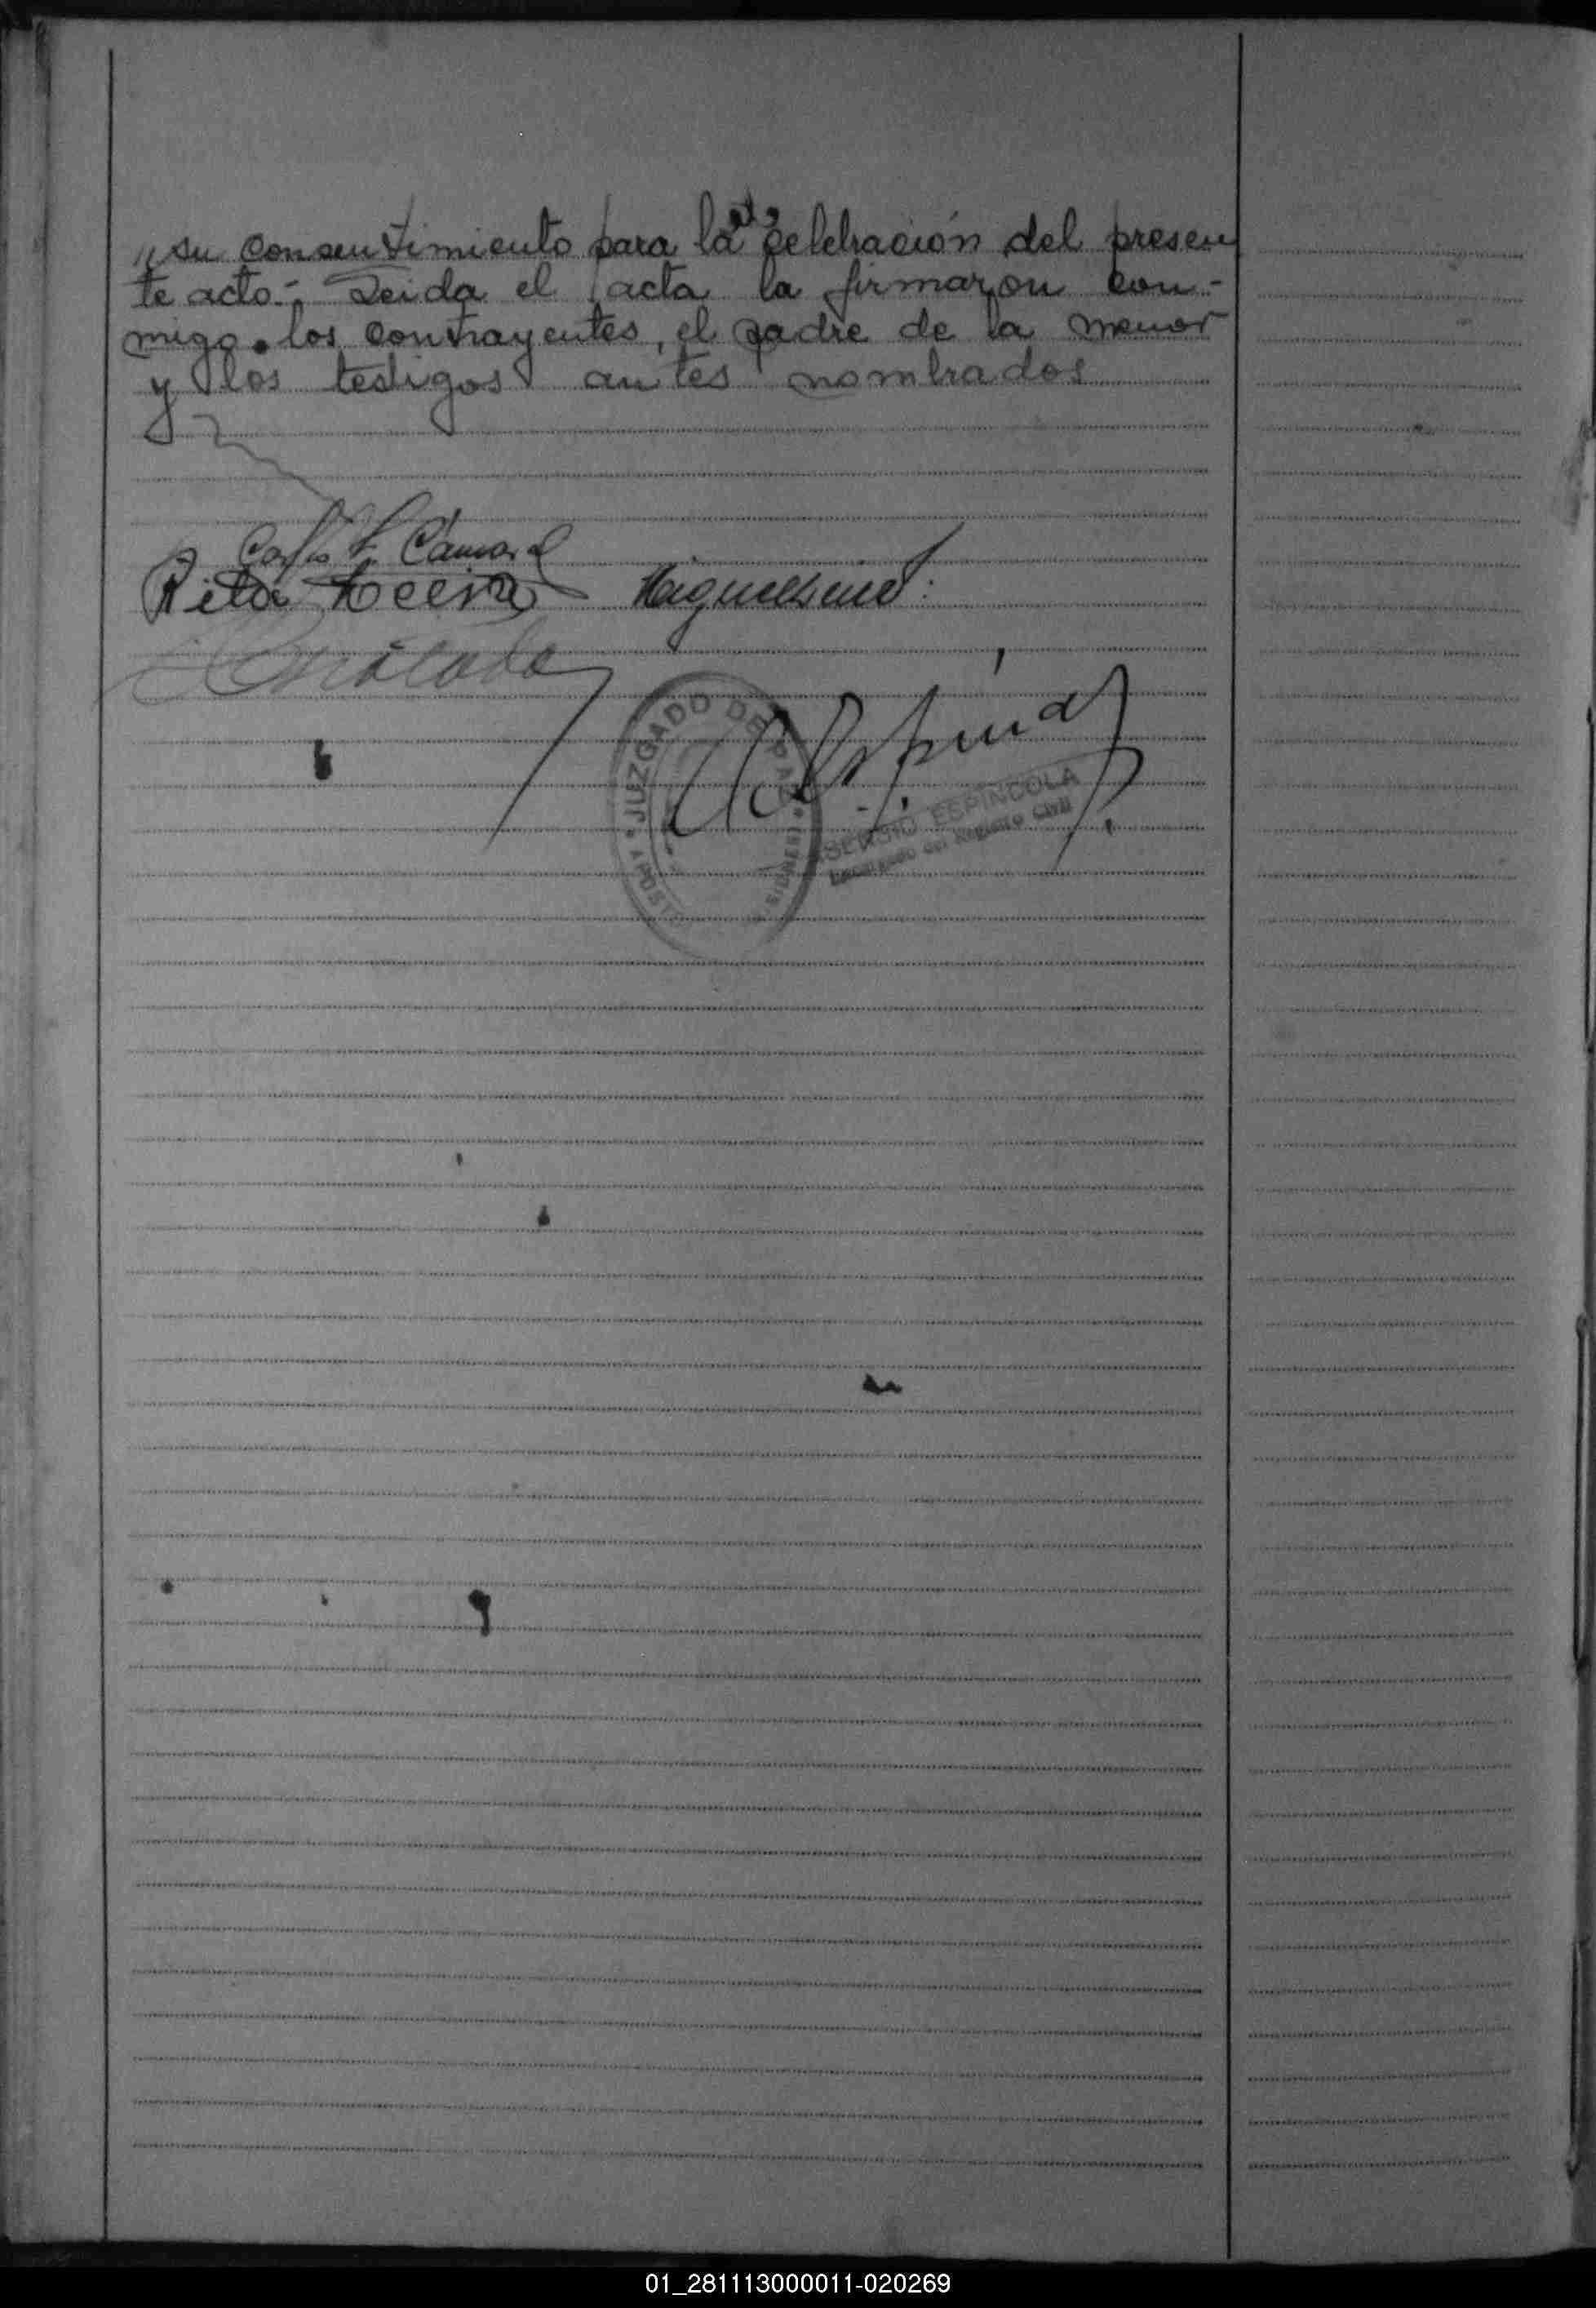 " su consentimiento para la celebración del presen
te acto.- Leida el acta la firmaron con-
migo los contrayentes, el padre de la menor
y los testigos antes nombrados
Carlos
Rita
JUZGADO DE PAZ
APOSTOL
MISIONES
ASENSIO ESPINDOLA
Encargado del Registro Civil
01_281113000011-020269